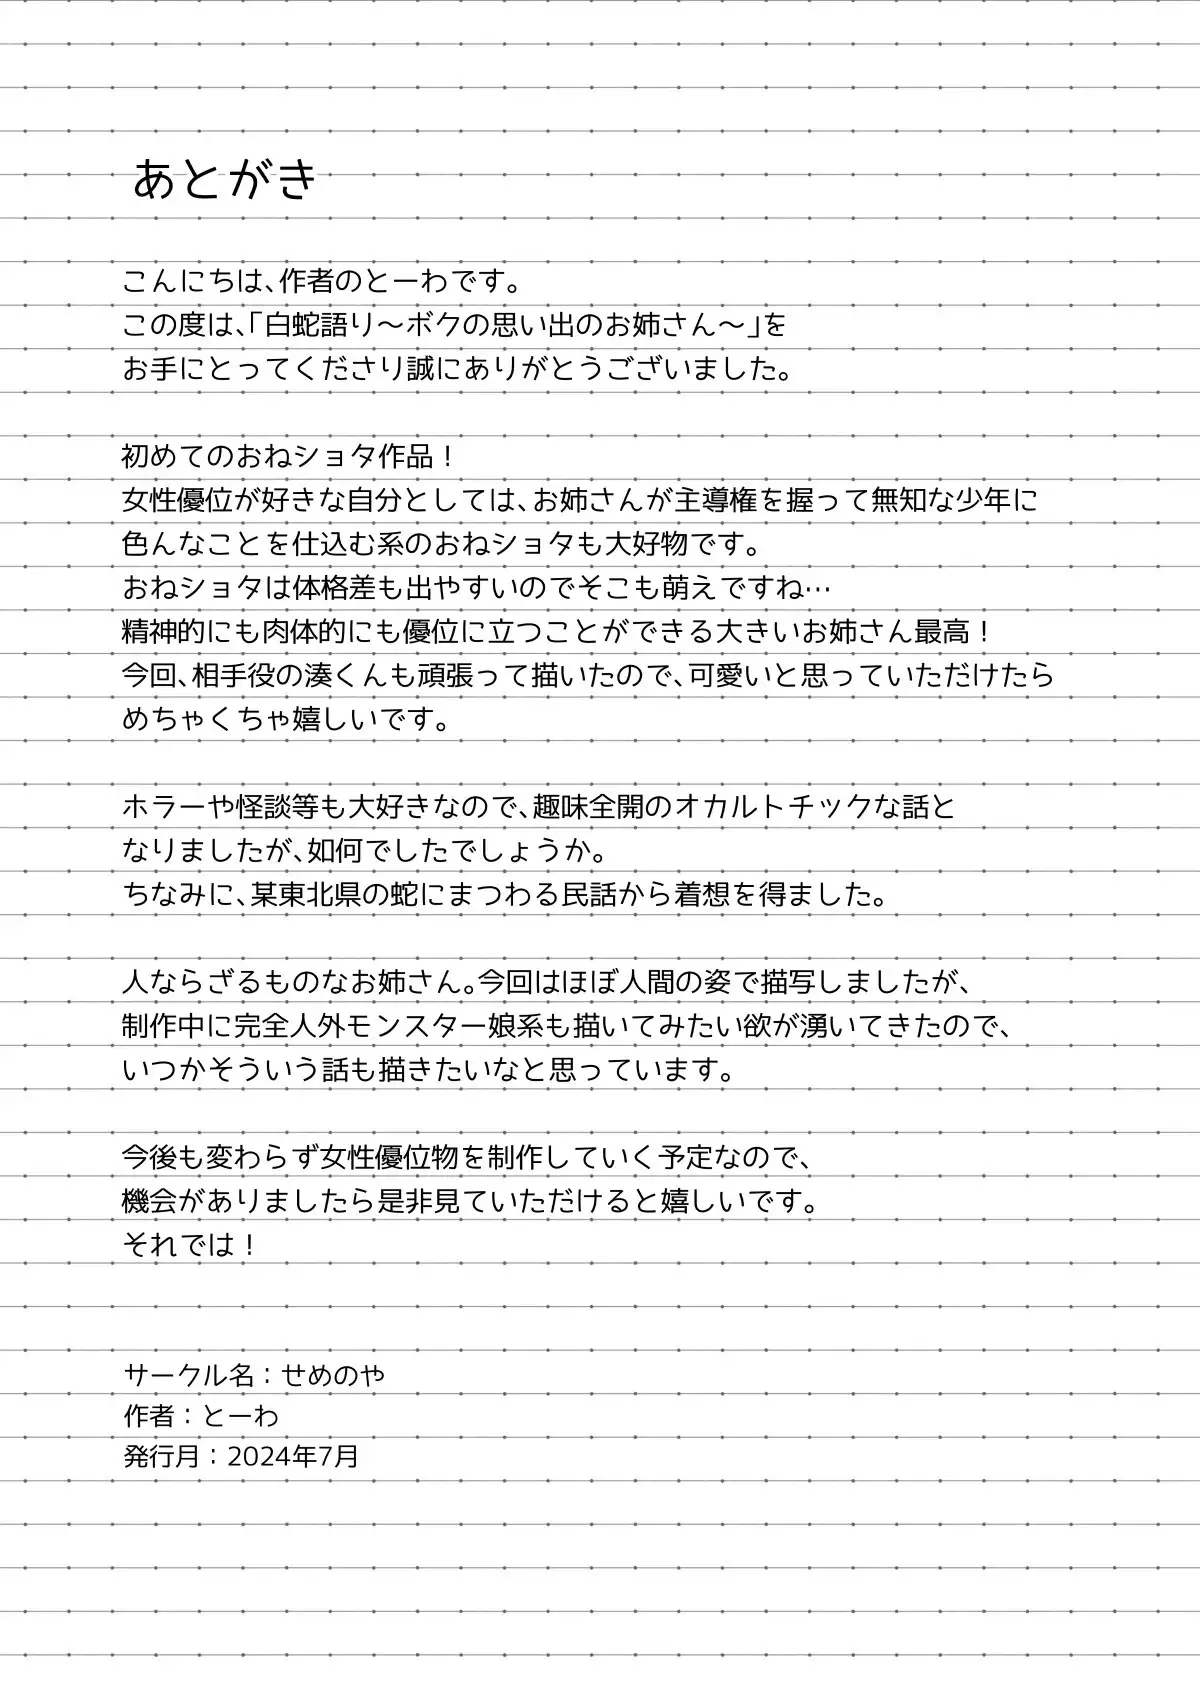 あとがき
こんにちは、作者のとーわです。
この度は、「白蛇語り～ボクの思い出のお姉さん～」を
お手にとってくださり誠にありがとうございました。
初めてのおねショタ作品！
女性優位が好きな自分としては、お姉さんが主導権を握って無知な少年に
色んなことを仕込む系のおねショタも大好物です。
おねショタは体格差も出やすいのでそこも萌えですね…
精神的にも肉体的にも優位に立つことができる大きいお姉さん最高！
今回、相手役の湊くんも頑張って描いたので、可愛いと思っていただけたら
めちゃくちゃ嬉しいです。
ホラーや怪談等も大好きなので、趣味全開のオカルトチックな話と
なりましたが、如何でしたでしょうか。
ちなみに、某東北県の蛇にまつわる民話から着想を得ました。
人ならざるものなお姉さん。今回はほぼ人間の姿で描写しましたが、
制作中に完全人外モンスター娘系も描いてみたい欲が湧いてきたので、
いつかそういう話も描きたいなと思っています。
今後も変わらず女性優位物を制作していく予定なので、
機会がありましたら是非見ていただけると嬉しいです。
それでは！
サークル名：せめのや
作者：とーわ
発行月：2024年7月